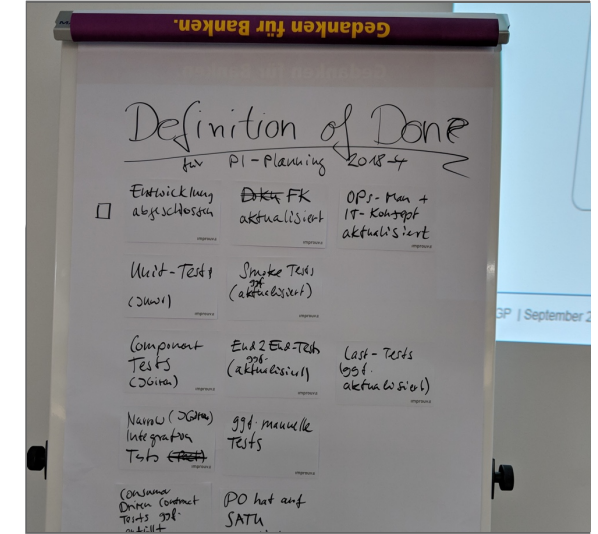 Gedanken für Banken.
Definition of Done
für PI-Planning 2018-4
Entwicklung
abgeschlossen
Doku FK
aktualisiert
OPs-Man +
IT-Konzept
aktualisiert
Unit-Tests
Smoke Tests
ggf.
(aktualisiert)
Component
Tests
End2End-Tests
ggf.
(aktualisiert)
Last-Tests
(ggf.
aktualisiert)
Narrow
Integration
Tests
ggf. manuelle
Tests
Consumer
Driven Contract
Tests ggf.
erstellt
PO hat auf
GP | September 2